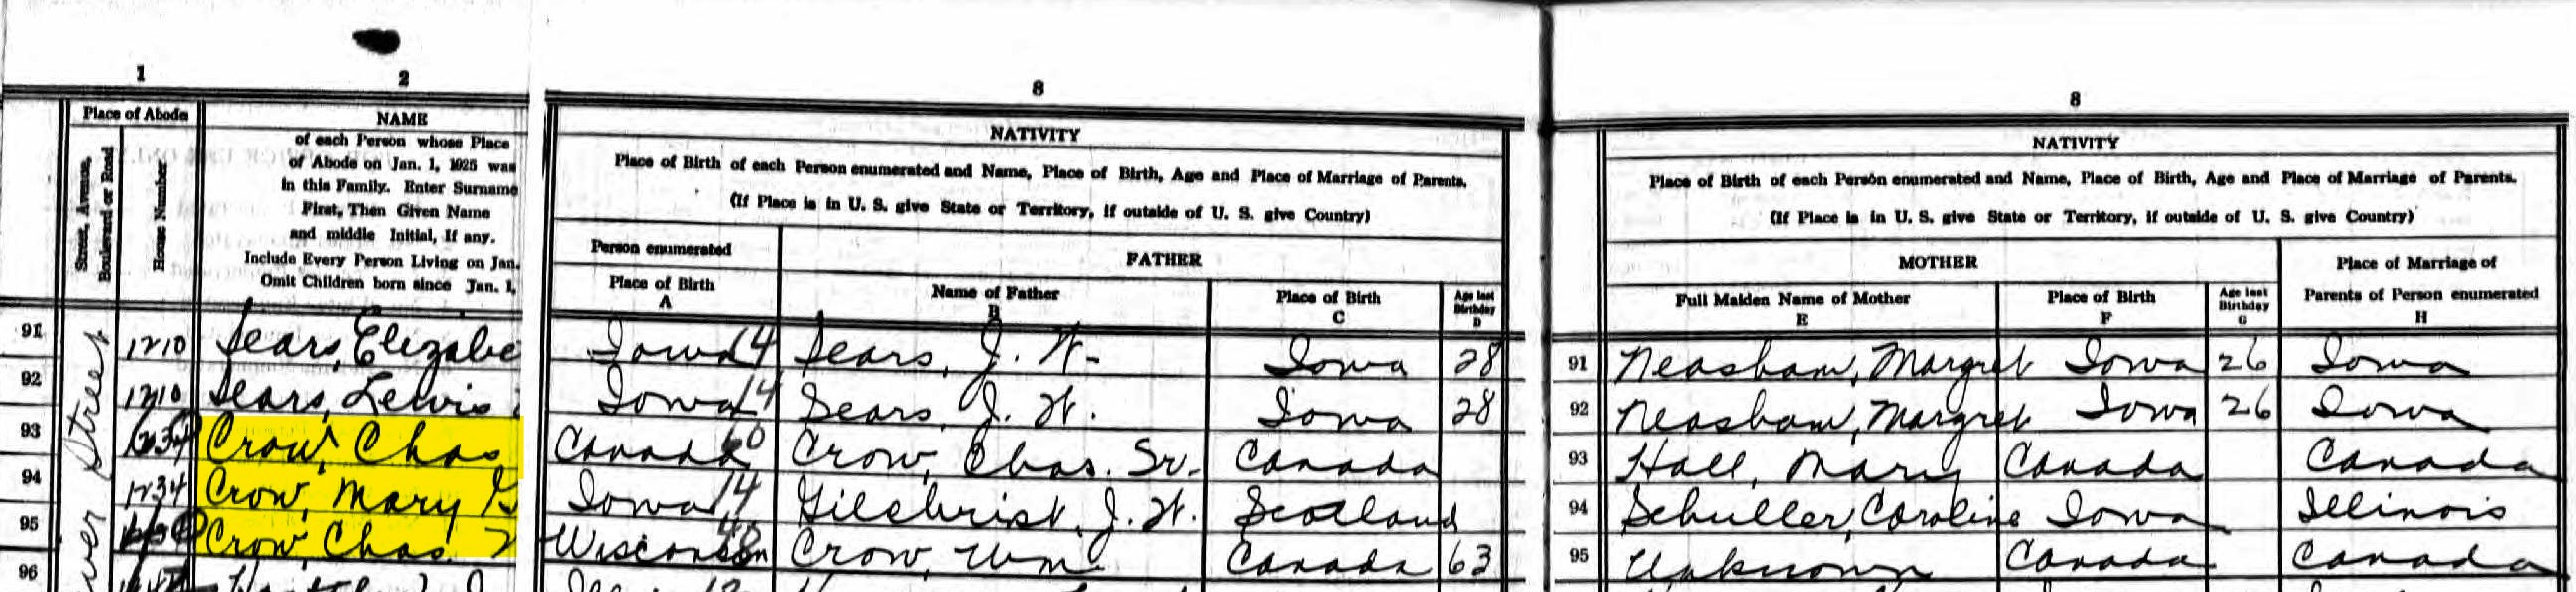 1 2
Place of Abode NAME
Street, Avenue, Boulevard or Road
House Number
of each Person whose Place
of Abode on Jan. 1, 1925 was
in this Family. Enter Surname
First, Then Given Name
and middle Initial, if any.
Include Every Person Living on Jan.
Omit Children born since Jan. 1,
8
NATIVITY
Place of Birth of each Person enumerated and Name, Place of Birth, Age and Place of Marriage of Parents.
(If Place is in U. S. give State or Territory, if outside of U. S. give Country)
Person enumerated FATHER
Place of Birth A Name of Father B Place of Birth C Age last Birthday D
8
NATIVITY
Place of Birth of each Person enumerated and Name, Place of Birth, Age and Place of Marriage of Parents.
(If Place is in U. S. give State or Territory, if outside of U. S. give Country)
MOTHER Place of Marriage of
Full Maiden Name of Mother E Place of Birth F Age last Birthday G Parents of Person enumerated H
Street
91 1210 Sears, Elizabe Iowa 14 Sears, J. W. Iowa 28 91 Neasham, Margret Iowa 26 Iowa
92 1210 Sears, Lewis Iowa 14 Sears, J. W. Iowa 28 92 Neasham, Margret Iowa 26 Iowa
93 1234 Crow, Chas Canada 60 Crow, Chas. Sr. Canada 93 Hall, Mary Canada Canada
94 1234 Crow, Mary G Iowa 14 Gilchrist, J. W. Scotland 94 Schuller, Caroline Iowa Illinois
95 Crow, Chas. Wisconsin 48 Crow, Wm Canada 63 95 Unknown Canada Canada
96